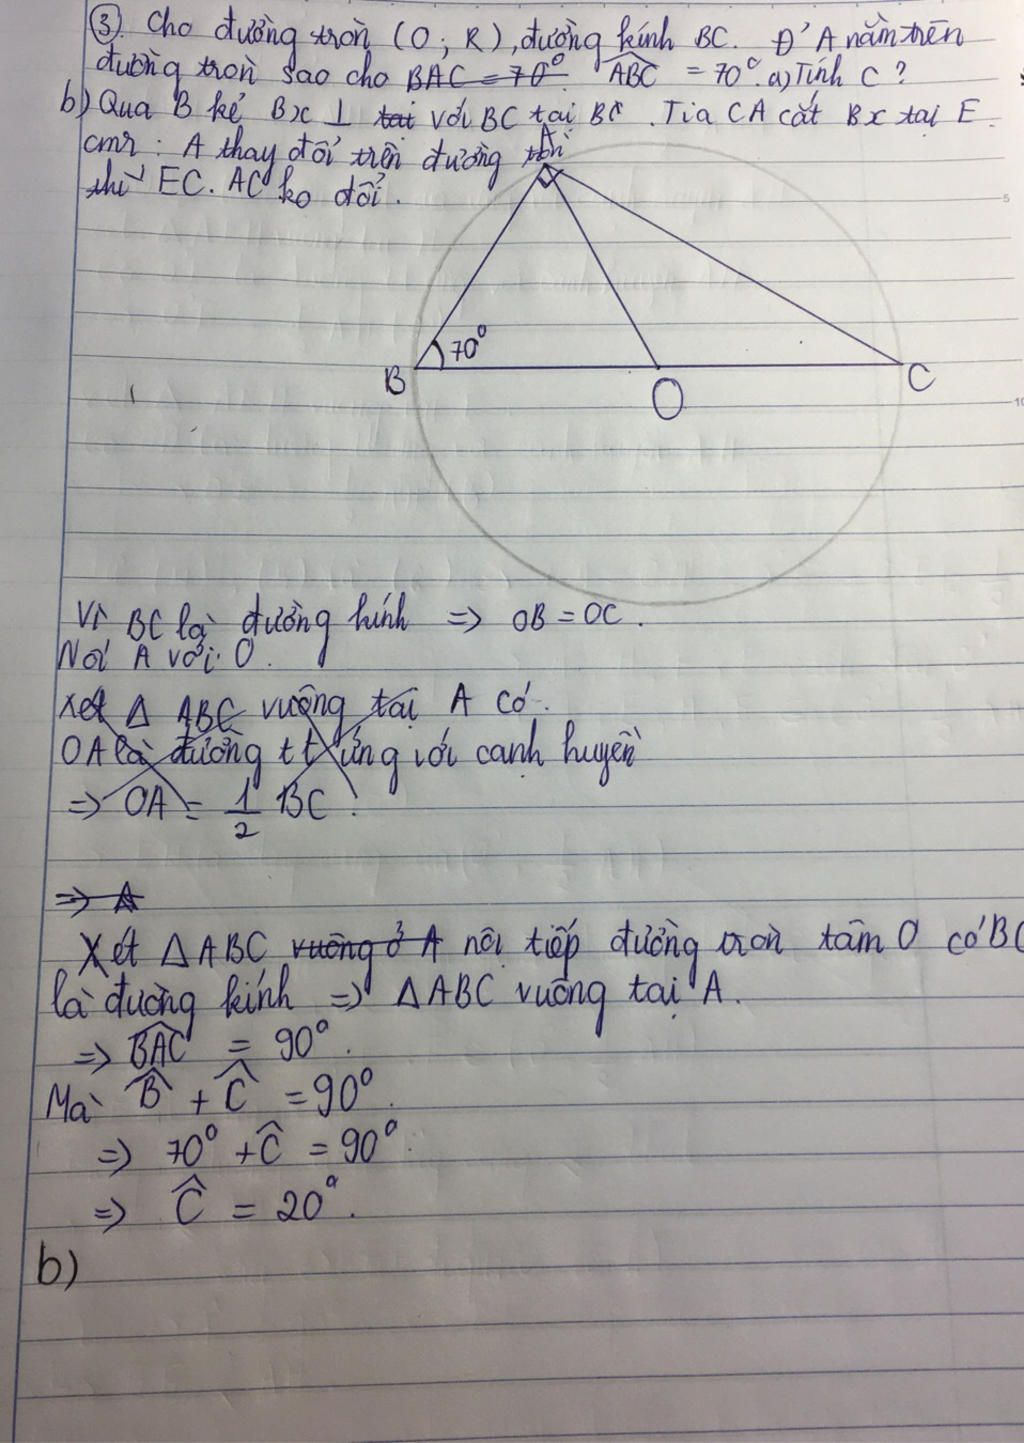 ③. Cho đường tròn (O; R), đường kính BC. Đ' A nằm trên
đường tròn sao cho BAC = 70° ABC = 70°. a) Tính C?
b) Qua B kẻ Bx ⊥ tại với BC tại BC. Tia CA cắt Bx tại E.
cmr: A thay đổi trên đường tròn
thì EC. AC ko đổi.
A
5
70°
B
O
C
10
Vì BC là đường kính => OB = OC.
Nối A với O.
Xét Δ ABC vuông tại A có.
OA là đường tt ứng với cạnh huyền
=> OA = 1/2 BC.
=> A
Xét ΔABC vuông ở A nội tiếp đường tròn tâm O có BC
là đường kính => ΔABC vuông tại A.
=> BAC = 90°.
Mà B + C = 90°.
=> 70° + C = 90°.
=> C = 20°.
b)